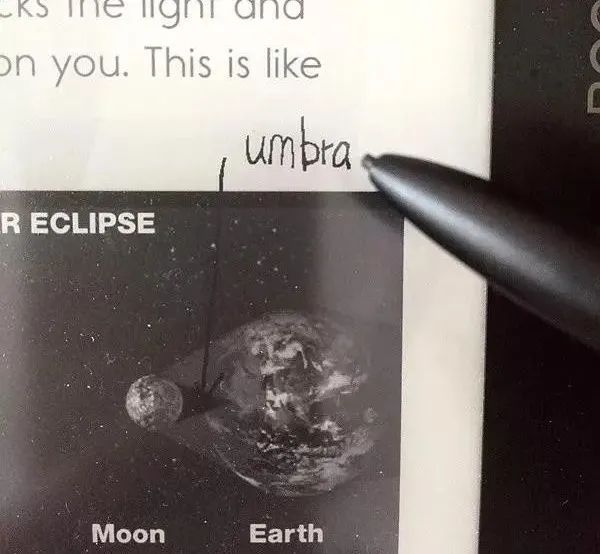 the light and
on you. This is like
umbra
R ECLIPSE
Moon Earth